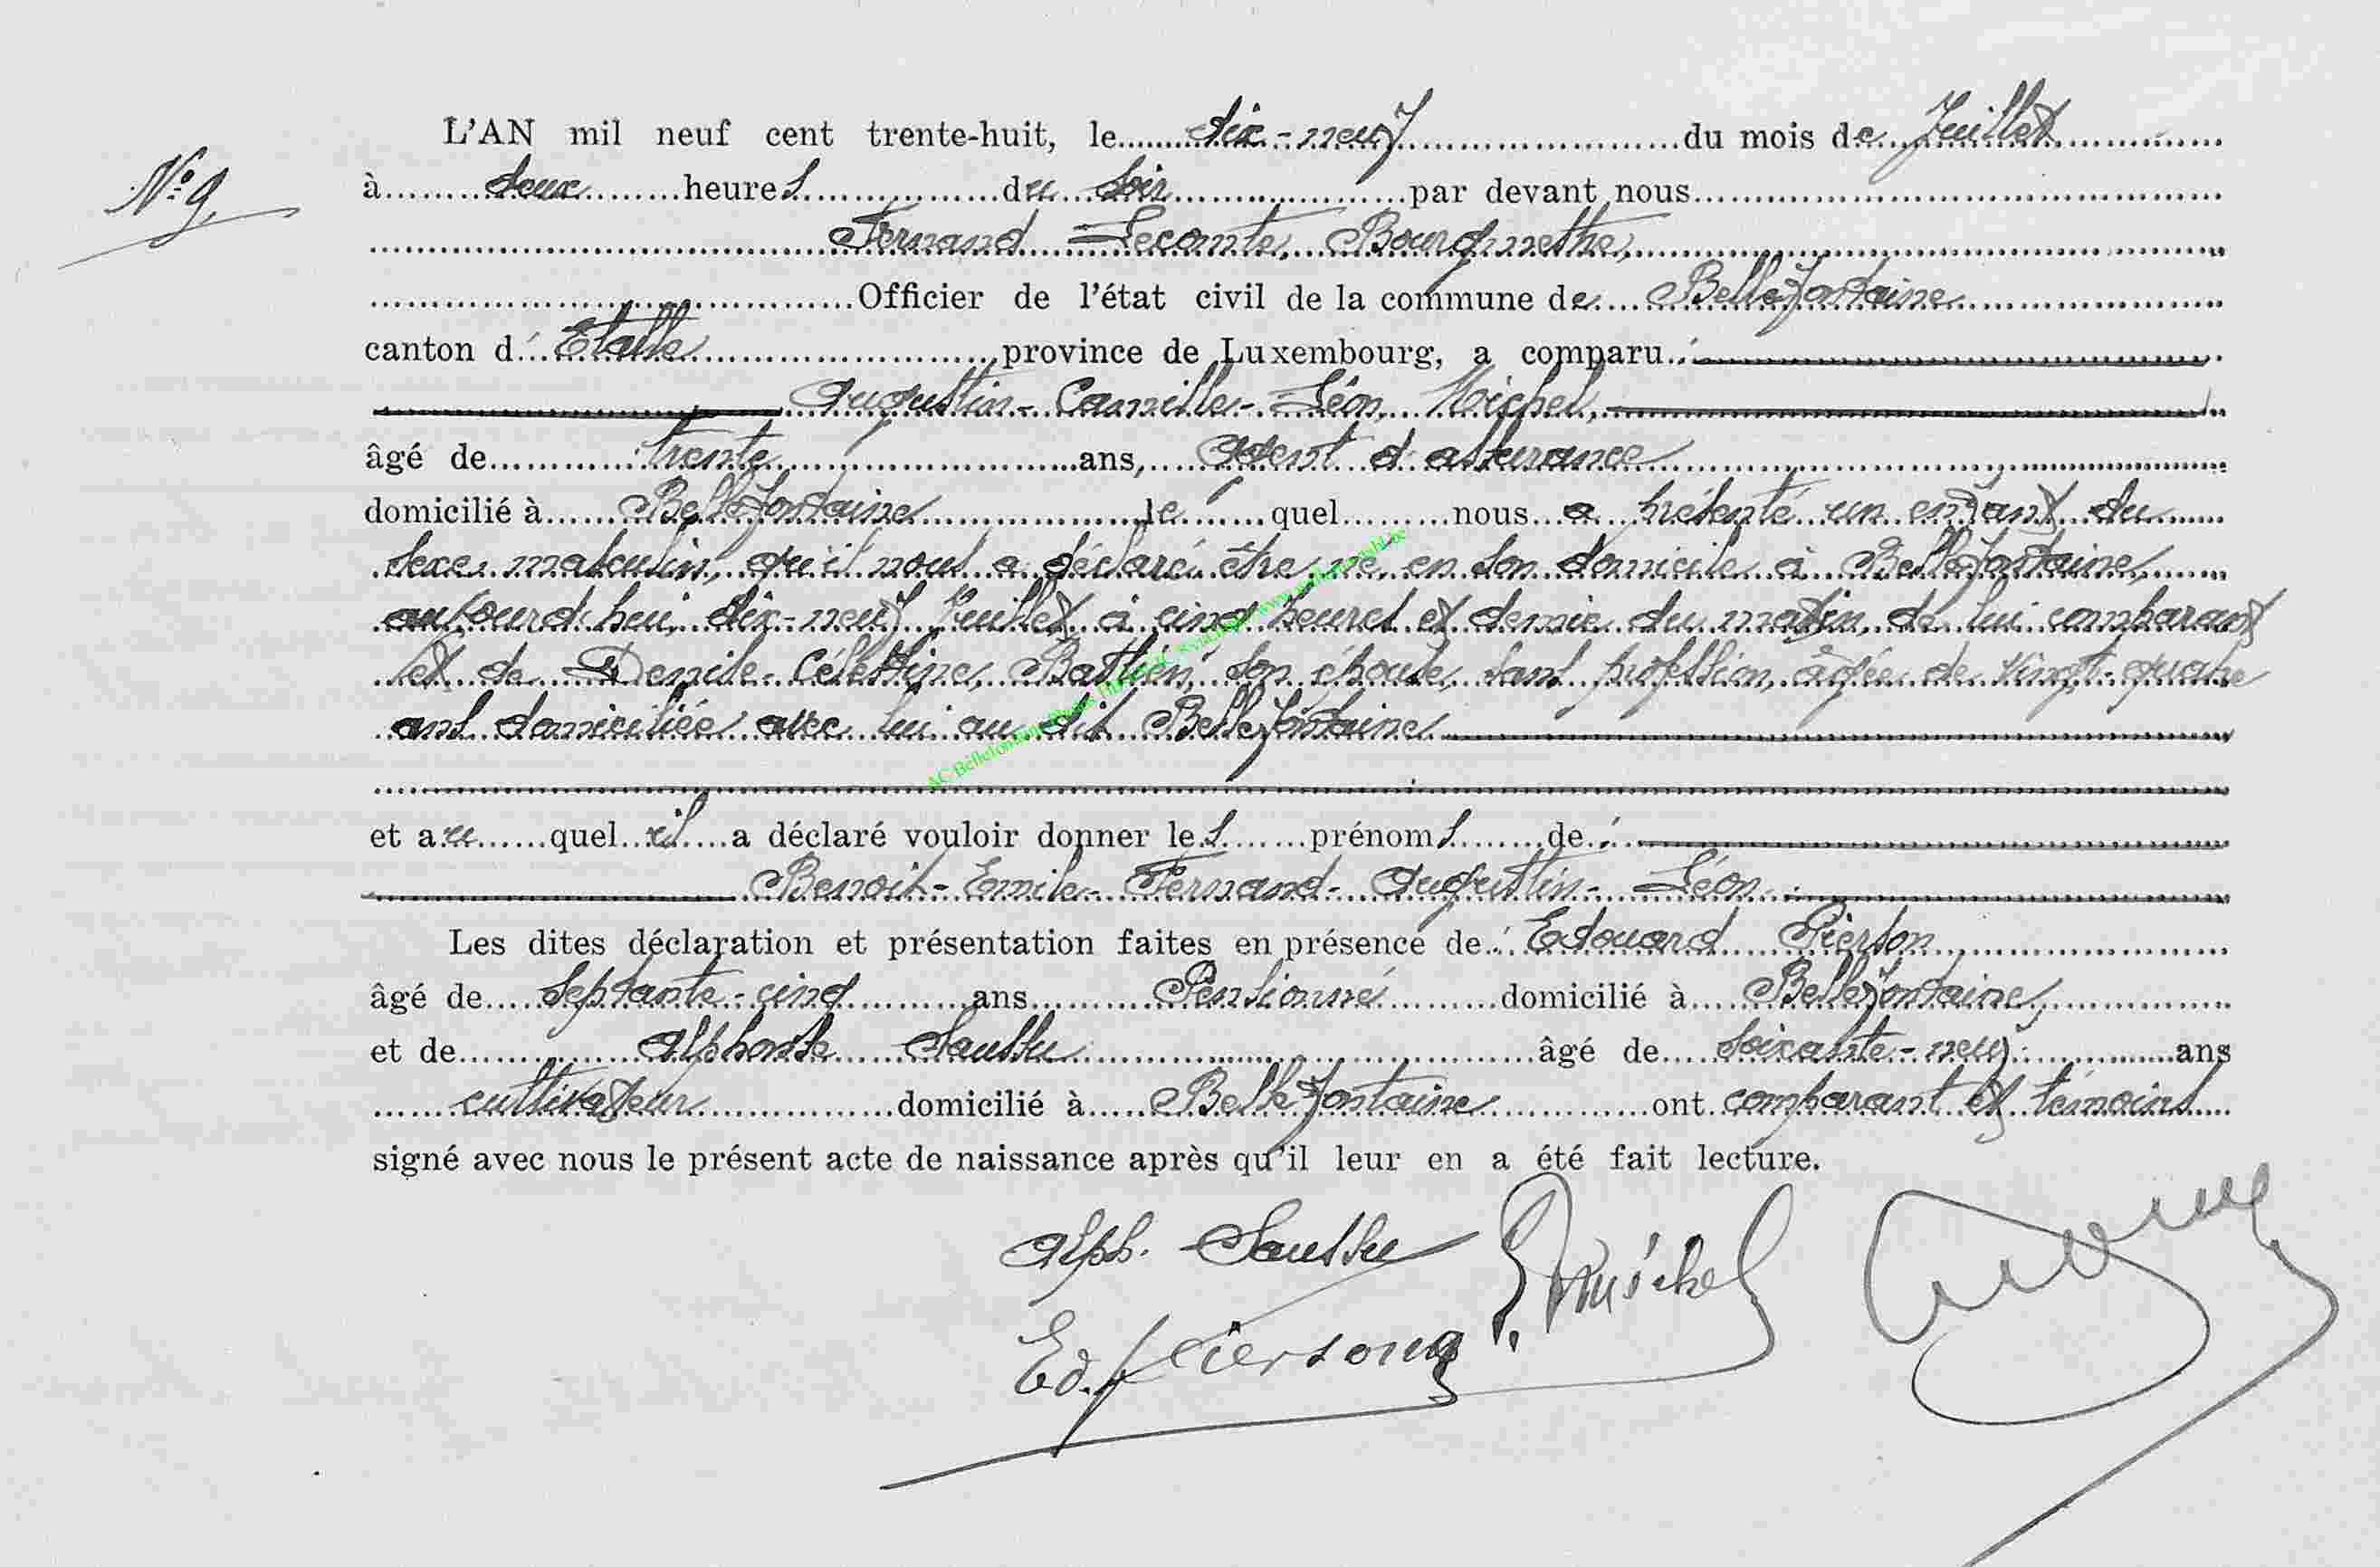 L'AN mil neuf cent trente-huit, le dix-neuf du mois de Juillet
N° 9
à deux heures du soir par devant nous
Fernand Lecomte, Bourgmestre,
Officier de l'état civil de la commune de Bellefontaine
canton d'Etalle province de Luxembourg, a comparu :
Augustin-Camille-Léon, Michel,
âgé de trente ans, agent d'assurance
domicilié à Bellefontaine lequel nous a présenté un enfant du
sexe masculin, qu'il nous a déclaré être né, en son domicile à Bellefontaine,
aujourd'hui, dix-neuf Juillet à cinq heures et demie du matin, de lui comparant
et de Denise-Célestine, Bastien, son épouse, sans profession, âgée de vingt-quatre
ans domiciliée avec lui au dit Bellefontaine
et auquel il a déclaré vouloir donner les prénoms de :
Benoit-Emile-Fernand-Augustin-Léon
Les dites déclaration et présentation faites en présence de : Edouard Pierson
âgé de septante-cinq ans Pensionné domicilié à Bellefontaine,
et de Alphonse Saussu âgé de soixante-neuf ans
cultivateur domicilié à Bellefontaine ont comparant et témoins
signé avec nous le présent acte de naissance après qu'il leur en a été fait lecture.
Alph. Saussu
Michel
Ed. Pierson